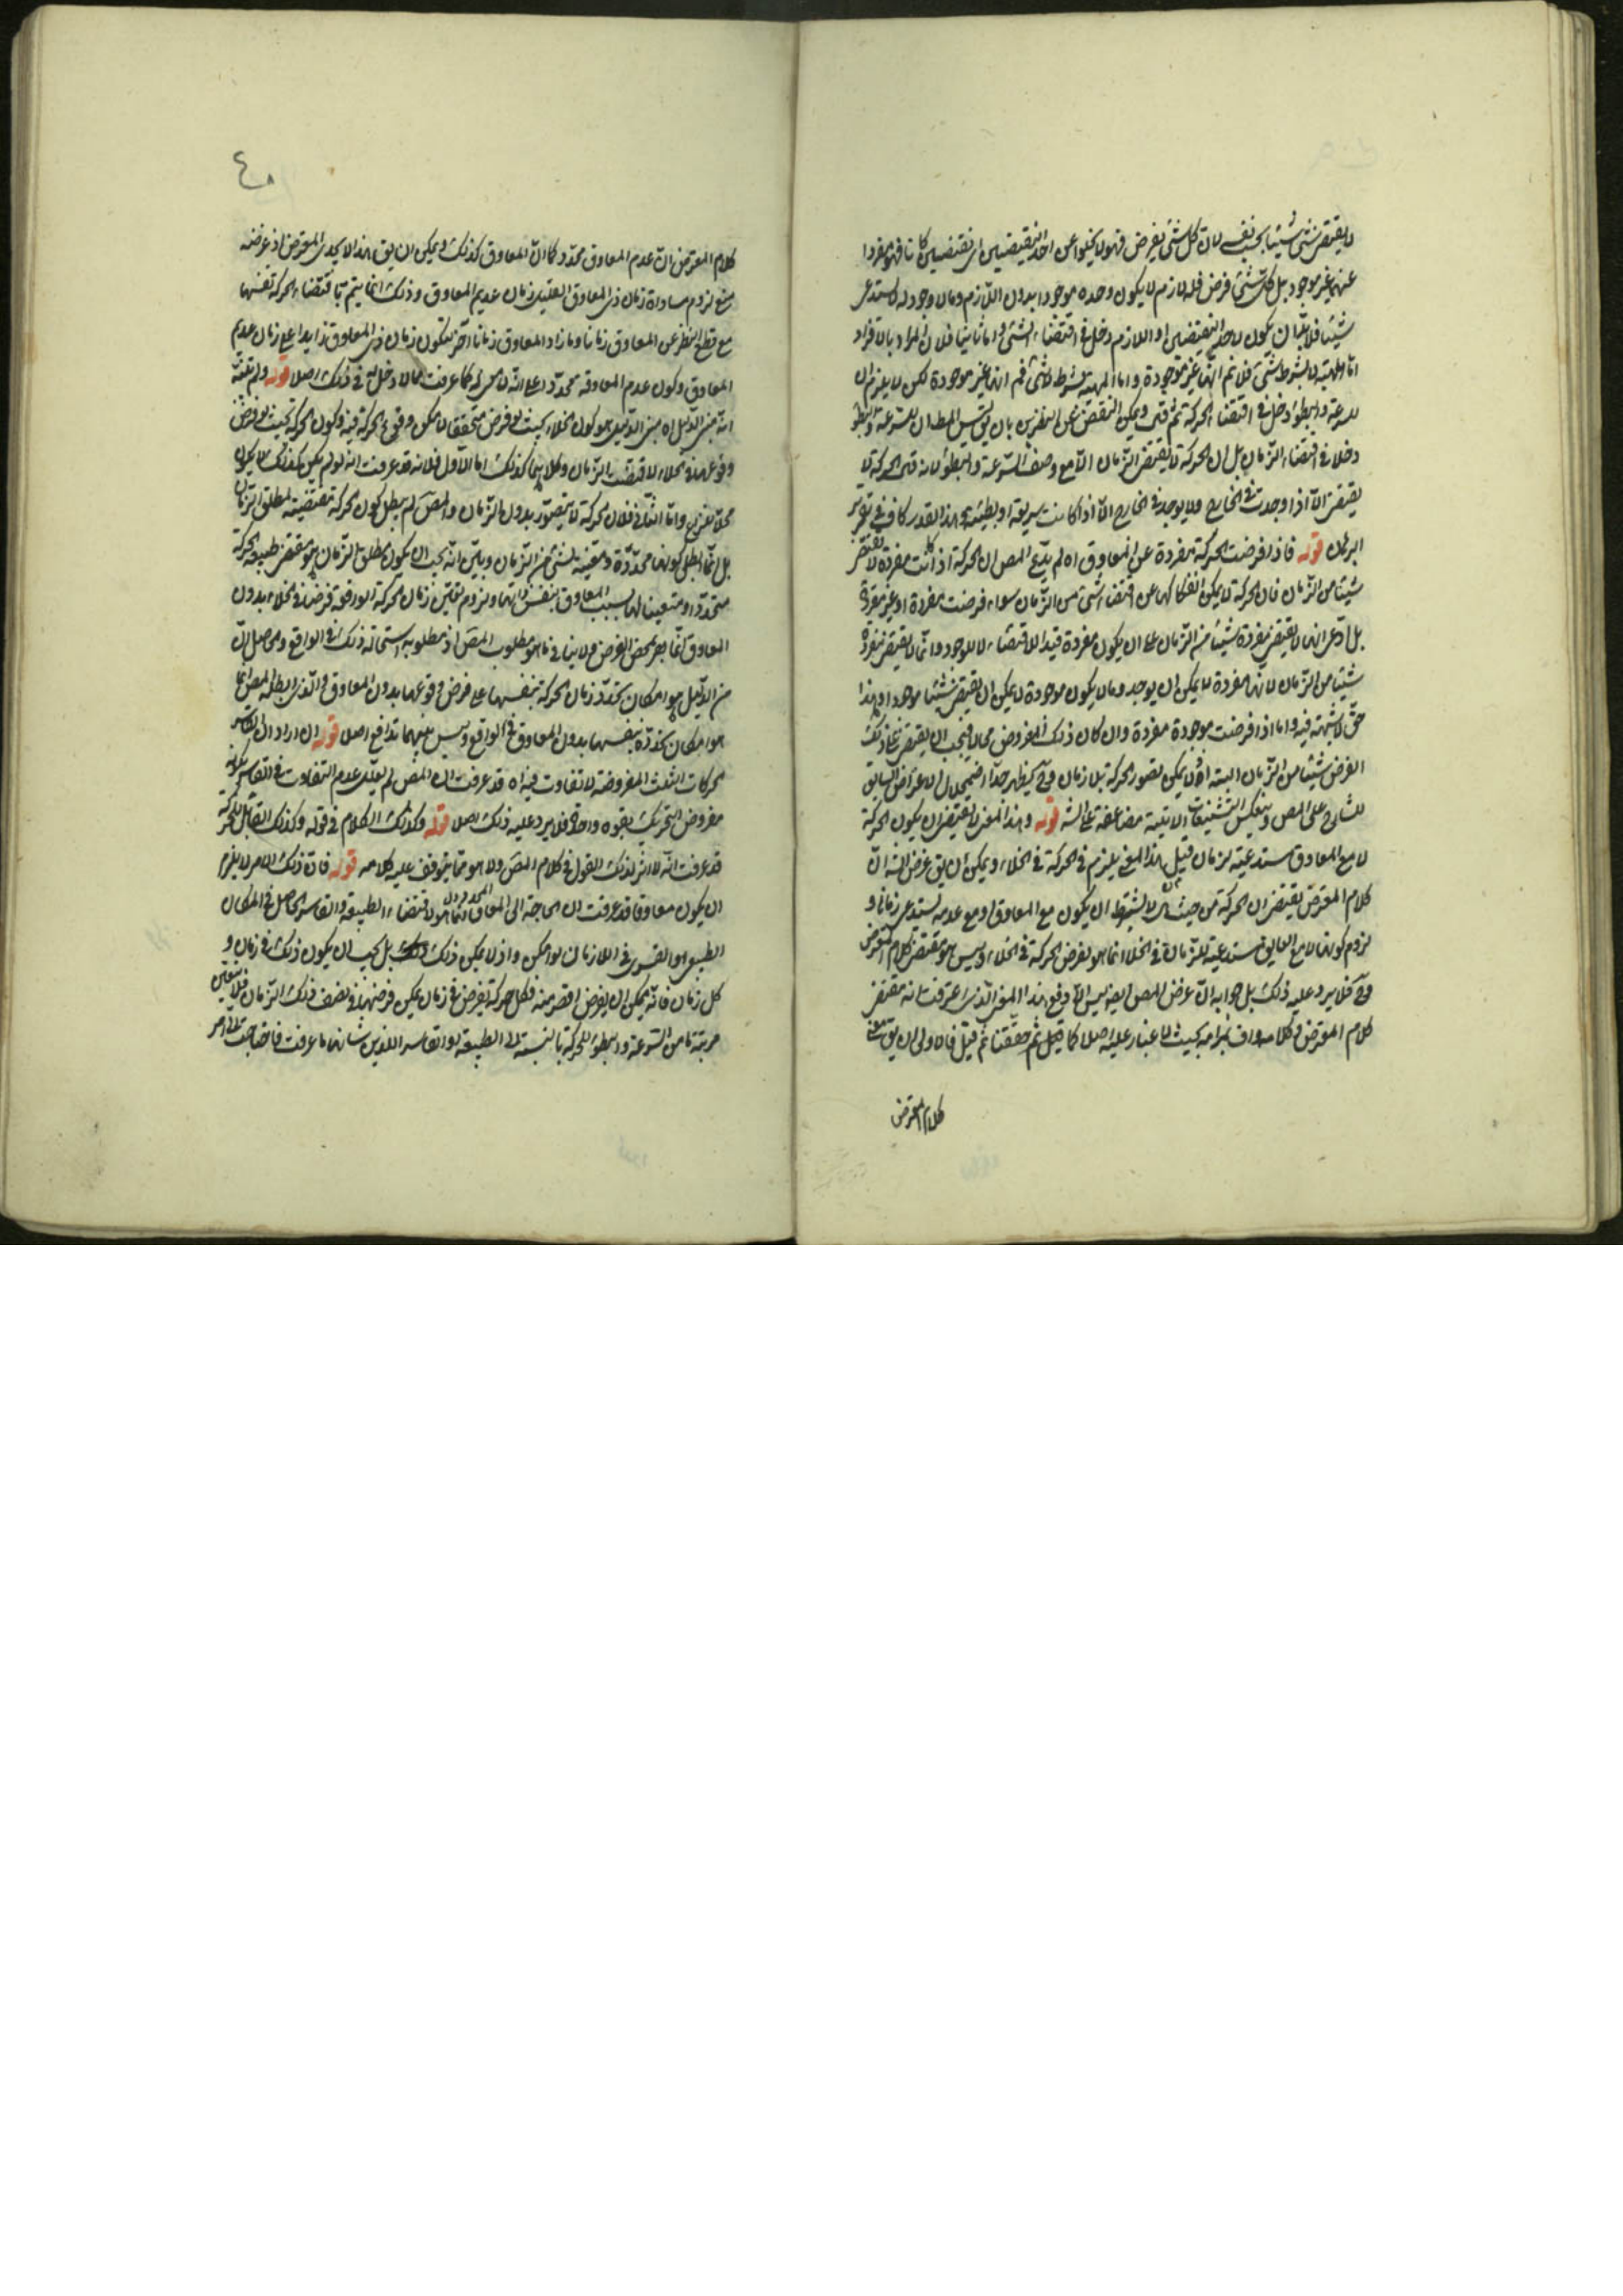 لا يقتضى شئ شيئا بحسب نفسه لان كل شئ يفرض فهو لا يخلوا عن احد النقيضين اى نقيضين كانا فهو مفردا
عنهما غير موجود بل كل شئ فرض فله لازم لا يكون وحده موجودا بدون اللازم وما لا وجود له لا يستدعى
شيئا فلا بد ان يكون لاحد النقيضين او اللازم دخل فى اقتضاء الشئ واما ثانيا فلان المراد بالانفراد
اما المهية لا بشرط شئ فلا نم انها غير موجودة واما المهية بشرط لا شئ فم انها غير موجودة لكن لا يلزم ان
للسرعة والبطؤ دخل فى اقتضاء الحركة ثم قيل ويمكن التفصى عن النظرين بان يق ليس المط ان للسرعة والبطؤ
دخلا فى اقتضاء الزمان بل ان الحركة لا يقتضى الزمان الا مع وصف السرعة والبطؤ لانه الحركة لا
يقتضى الا اذا وجدت فى الخارج ولا يوجد فى الخارج الا اذا كانت سريعة او بطيئة هذا القدر كاف فى تقرير
البرهان قوله فاذا فرضت الحركة مفردة عن المعاوق اه لم يدع المص ان الحركة اذا كانت مفردة لا يقتضى
شيئا من الزمان فان الحركة لا يمكن انفكاكها عن اقتضاء شئ من الزمان سواء فرضت مفردة او غير مفردة
بل ادعى انها لا يقتضى مفردة شيئا من الزمان على ان يكون مفردة قيد الاقتضاء لا للوجود وانما لا يقتضى مفردة
شيئا من الزمان لانها مفردة لا يمكن ان يوجد وما لا يكون موجودة لا يمكن ان يقتضى شيئا موجودا وهذا
حق لا شبهة فيه واما اذا فرضت موجودة مفردة وان كان ذلك المفروض محالا فيجب ان يقتضى على ذلك
الفرض شيئا من الزمان البتة اذ لا يمكن تصور الحركة بلا زمان وح يظهر جدا اضمحلال الاعتراض السابق
للشارح على المص وينعكس التشنيعات الاتية مضاعفة على الشه قوله وهذا المعنى لا يقتضى ان يكون الحركة
لا مع المعاوق مستدعية لزمان قيل هذا المعنى يلزم فى الحركة فى الخلاء ويمكن ان يق غرض الشه ان
كلام المعترض يقتضى ان الحركة من حيث هى لا بشرط ان يكون مع المعاوق او مع عدمه يستدعى زمانا و
لزوم كونها لا مع العايق مستدعية للزمان فى الخلاء انما هو بفرض الحركة فى الخلاء وليس هو مقتضى كلام المعترض
وح فلا يرد عليه ذلك بل جوابه ان غرض المص ايضا ليس الا دفع هذا المعنى الذى عرفت انه مقتضى
كلام المعترض فكلامه واف بمرامه بحيث لا غبار عليه اصلا كما قيل ثم حققنا ثم قيل فالاولى ان يق معنى
كلام المعترض
كلام المعترض ان عدم المعاوق محدد كما ان المعاوق كذلك ويمكن ان يق هذا لا يجدى المعترض اذ غرضه
منع لزوم مساواة زمان ذى المعاوق القليل زمان عديم المعاوق وذلك انما يتم باقتضاء الحركة نفسها
مع قطع النظر عن المعاوق زمانا وما زاد المعاوق زمانا اخر ليكون زمان ذى المعاوق زايدا على زمان عديم
المعاوق وكون عدم المعاوقة محددا على انه لا معنى له كما عرفت مما لا دخل له فى ذلك اصلا قوله ولم يتنبه
انه مبنى الدليل اه مبنى الدليل هو كون الخلاء بحيث لو فرض متحققا لامكن وقوع الحركة فيه وكون الحركة بحيث لو فرض
وقوعها فى الخلاء لاقتضت الزمان وكلاهما كذلك اما الاول فلانه قد عرفت انه لو لم يكن كذلك لا يكون
خلاء مفرض واما الثانى فلان الحركة لا يتصور بدون الزمان والمص لم يبطل كون الحركة مقتضية لمطلق الزمان
بل انما ابطل كونها محددة ومعينة لشئ من الزمان وبين انه يجب ان يكون مطلق الزمان هو مقتضى طبيعة الحركة
متحددا ومتعينا لها بسبب المعاوق بنفس ذاتها ولزوم تعين زمان الحركة الواقعة فرضا فى الخلاء بدون
المعاوق انما هو بمحض الفرض ولا ينافى ما هو مطلوب المص اذ مطلوبه استحالة ذلك فى الواقع والحاصل ان
من الدليل هو امكان تحدد زمان الحركة بنفسها على فرض وقوعها بدون المعاوق والذى ابطله المص انما
هو امكان تحدده بنفسها بدون المعاوق فى الواقع وليس بينهما تدافع اصلا قوله ان اراد ان القاسر
الحركات الثلث المفروضة لا تفاوت فيه اه قد عرفت ان المص لم يعلل عدم التفاوت فى القاسر بكونه
مفروض التحريك بقوة واحدة فلا يرد عليه ذلك اصلا قوله وكذلك الكلام فى قوله وكذلك القابل للحركة
قد عرفت انه لا اثر لذلك القول فى كلام المص ولا هو مما يتوقف عليه كلامه قوله فان ذلك الامر لا يلزم
ان يكون معاوقا قد عرفت ان الحاجة الى المعاوق المحدد انما هو لاقتضاء الطبيعة والقاسر الحاصل فى المكان
الطبيعى او القسرى فى اللازمان لو امكن واذ لا يمكن ذلك بل يجب ان يكون ذلك فى زمان و
كل زمان فانه يمكن ان يفرض اقصر منه فكل حركة يفرض فى زمان يمكن فرضها فى نصف ذلك الزمان فلا يتعين
مرتبة ما من السرعة والبطؤ للحركة بالنسبة الى الطبيعة او القاسر اللذين شانهما ما عرفت فاحتاجت الى امر